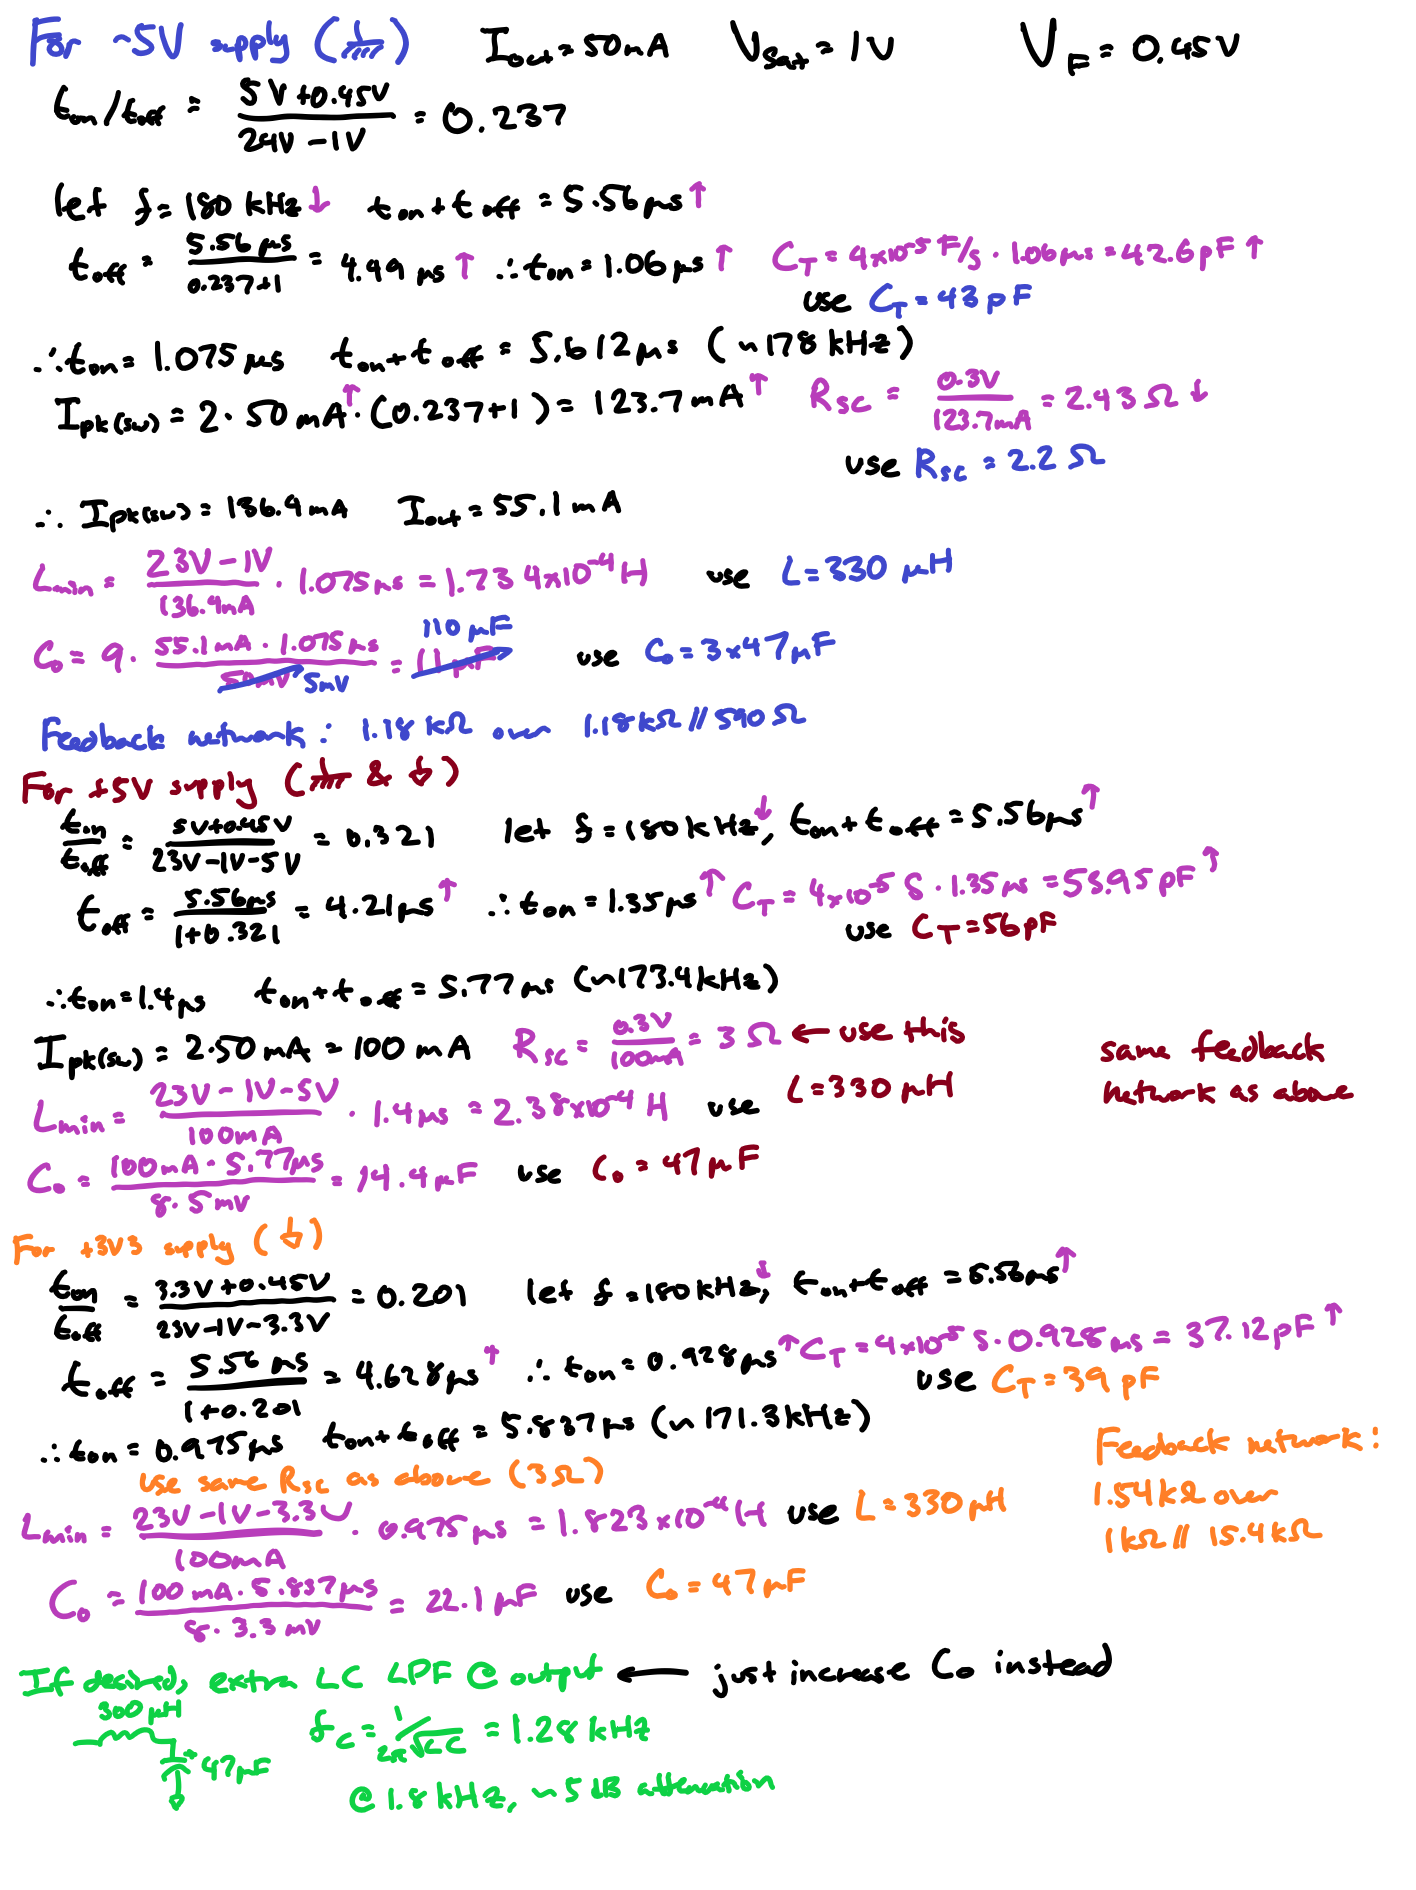 For -5V supply (⏚) I_out = 50mA V_sat = 1V V_F = 0.45V
t_on/t_off = (5V+0.45V)/(24V-1V) = 0.237
let f = 180 kHz↓ t_on+t_off = 5.56μs↑
t_off = 5.56μs/(0.237+1) = 4.49μs↑ ∴t_on = 1.06μs↑ C_T = 4x10^-5 F/s · 1.06μs = 42.6pF↑
use C_T = 43pF
∴t_on = 1.075μs t_on+t_off = 5.612μs (~178kHz)
I_pk(sw) = 2·50mA↑·(0.237+1) = 123.7mA↑ R_SC = 0.3V/123.7mA = 2.43Ω↓
use R_SC = 2.2Ω
∴ I_pk(sw) = 136.4mA I_out = 55.1mA
L_min = (23V-1V)/136.4mA · 1.075μs = 1.734x10^-4 H use L = 330μH
110μF
C_o = 9 · (55.1mA · 1.075μs)/(50mV 5mV) = 11μF use C_o = 3x47μF
Feedback network: 1.18kΩ over 1.18kΩ//590Ω
For +5V supply (⏚ & ⏚)
t_on/t_off = (5V+0.45V)/(23V-1V-5V) = 0.321 let f = 180kHz↓, t_on+t_off = 5.56μs↑
t_off = 5.56μs/(1+0.321) = 4.21μs↑ ∴t_on = 1.35μs↑ C_T = 4x10^-5 S · 1.35μs = 53.95pF↑
use C_T = 56pF
∴t_on = 1.4μs t_on+t_off = 5.77μs (~173.4kHz)
I_pk(sw) = 2·50mA = 100mA R_SC = 0.3V/100mA = 3Ω ← use this
same feedback
network as above
L_min = (23V-1V-5V)/100mA · 1.4μs = 2.38x10^-4 H use L = 330μH
C_o = (100mA · 5.77μs)/(8·5mV) = 14.4μF use C_o = 47μF
For +3V3 supply (⏚)
t_on/t_off = (3.3V+0.45V)/(23V-1V-3.3V) = 0.201 let f = 180kHz↓, t_on+t_off = 5.56μs↑
t_off = 5.56μs/(1+0.201) = 4.628μs↑ ∴t_on = 0.928μs↑ C_T = 4x10^-5 S · 0.928μs = 37.12pF↑
use C_T = 39pF
∴t_on = 0.975μs t_on+t_off = 5.837μs (~171.3kHz)
use same R_SC as above (3Ω)
Feedback network:
1.54kΩ over
1kΩ//15.4kΩ
L_min = (23V-1V-3.3V)/100mA · 0.975μs = 1.823x10^-4 H use L = 330μH
C_o = (100mA · 5.837μs)/(8·3.3mV) = 22.1μF use C_o = 47μF
If desired, extra LC LPF @ output ← just increase C_o instead
300μH
f_c = 1/(2π√LC) = 1.28kHz
+ 47μF
@ 1.8kHz, ~5dB attenuation